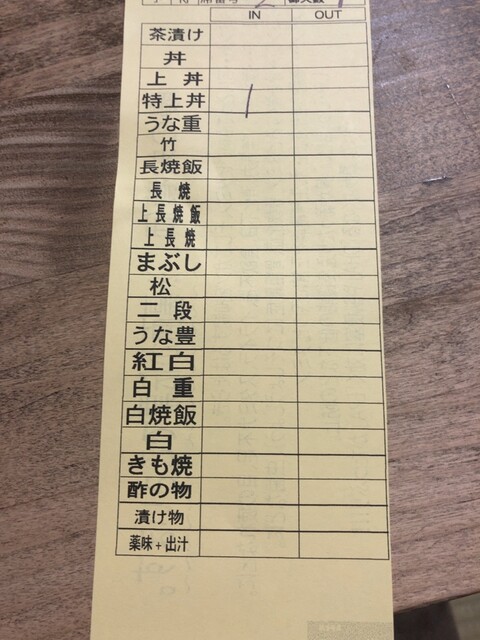 席番号 2
IN OUT
茶漬け
丼
上丼
特上丼 1
うな重
竹
長焼飯
長焼
上長焼飯
上長焼
まぶし
松
二段
うな豊
紅白
白重
白焼飯
白
きも焼
酢の物
漬け物
薬味+出汁